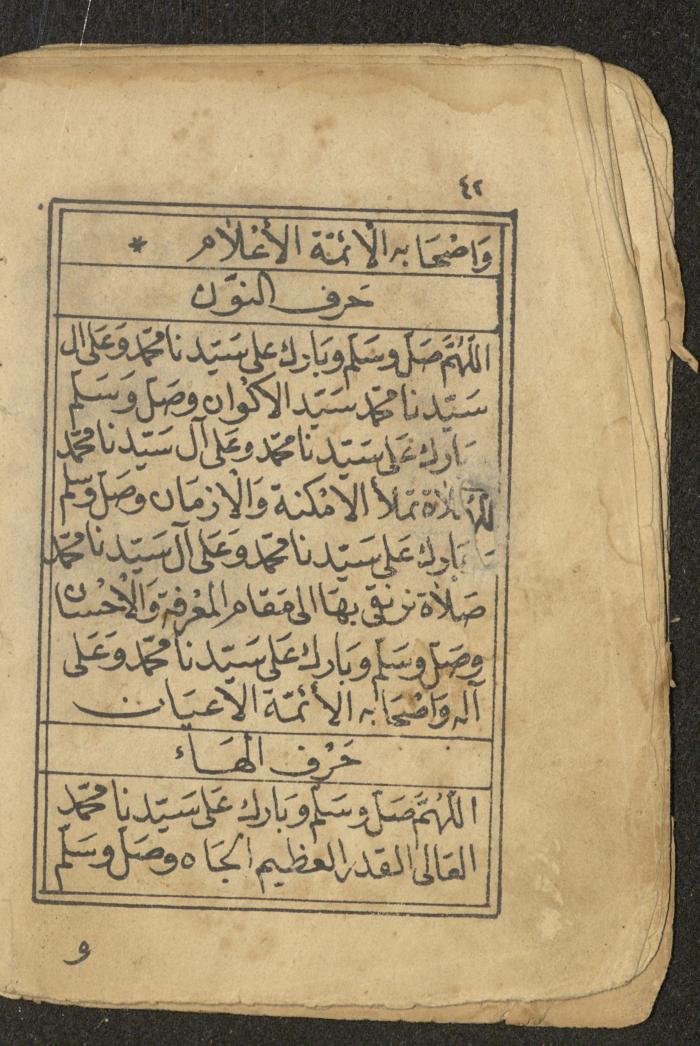 ٤٢
وَاصْحَابه الْأئمّة الأعْلام *
حَرف النوّن
اللّهُمَّ صَلّ وسَلّم وبَارك على سَيّدنا محمّد وَعَلى ال
سَيّدنا محمّد سَيّد الاكْوان وصَلّ وَسَلّم
وبَارك عَلى سَيّدنا محمّد وعَلى آل سَيّدنا محمّد
صَلاة تملأ الامْكنة وَالْازمَان وصَلّ وسَلّم
وبَارك عَلى سَيّدنا محمّد وَعَلى آل سَيّدنا محمّد
صَلاة نرتقى بهَا الى مَقام المعْرفة وَالْاحْسان
وصَلّ وسَلّم وبَارك عَلى سَيّدنا محمّد وَعَلى
آله وَاصْحَابه الأئمّة الاعيَان
حَرْف الْهَاء
اللّهُمَّ صَلّ وسَلّم وبَارك عَلى سَيّدنا محمّد
العَالى القدر العظيم الجَاه وصَلّ وسَلّم
و